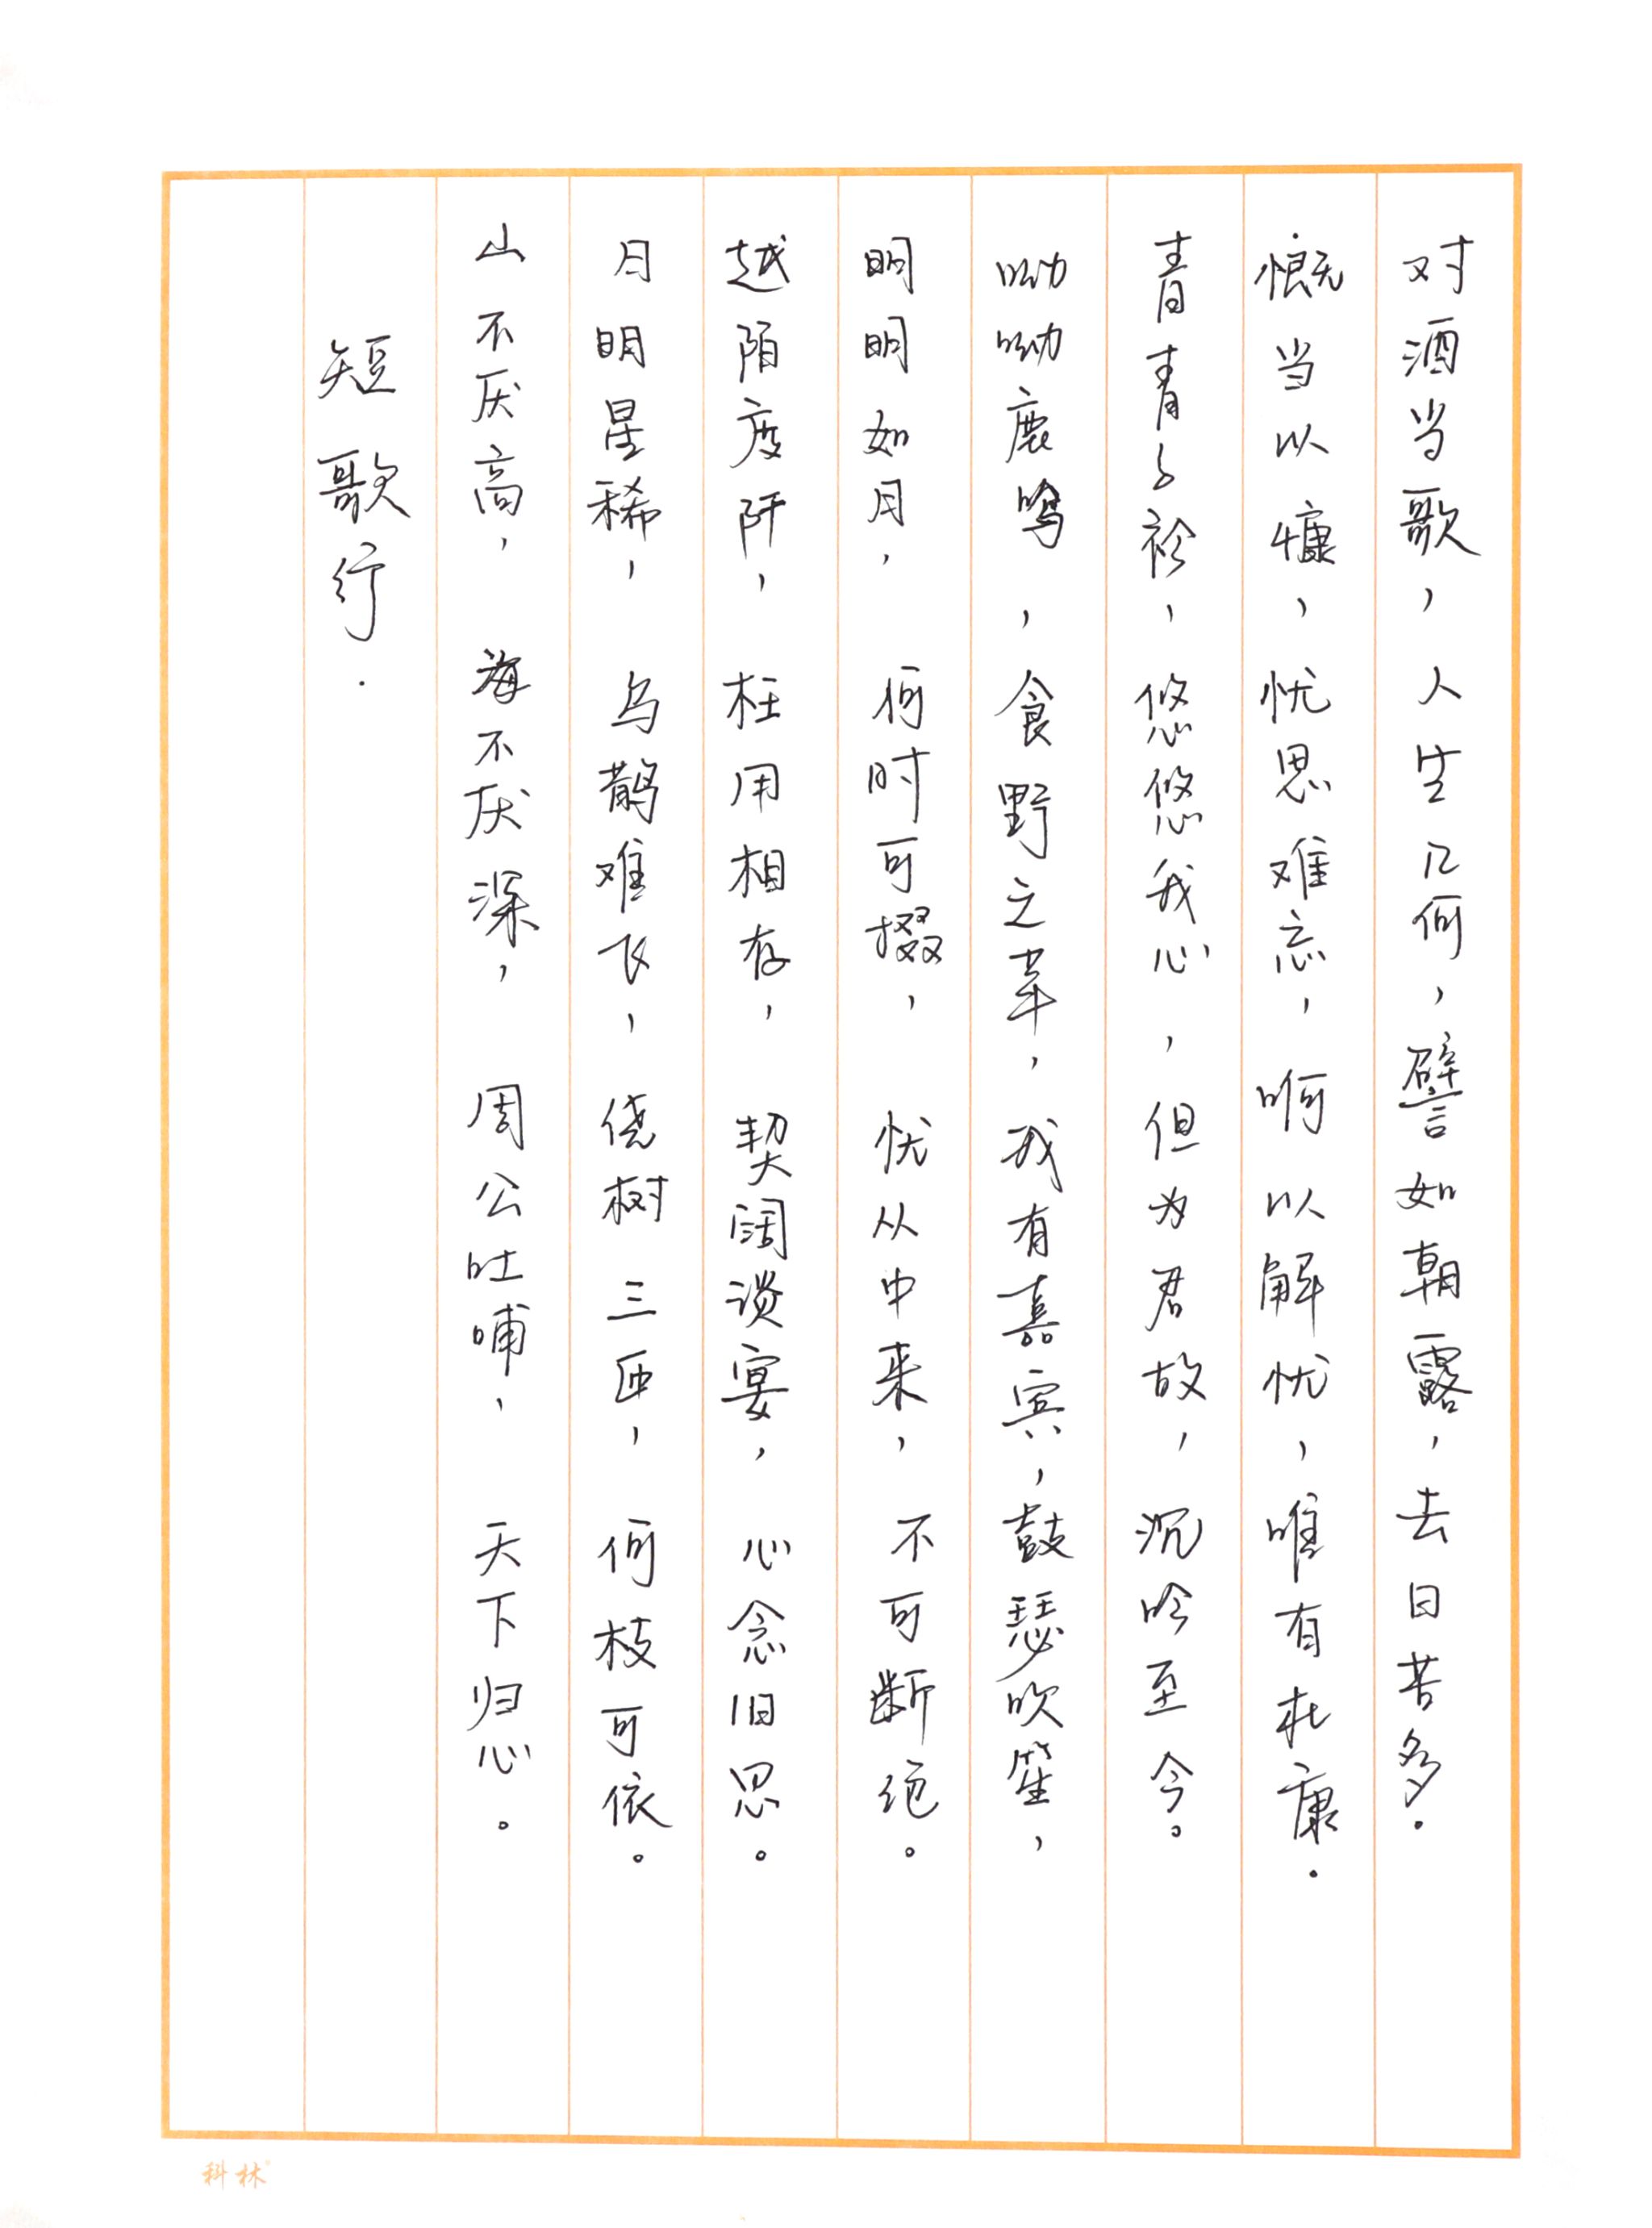 对酒当歌，人生几何，譬如朝露，去日苦多。
慨当以慷，忧思难忘，啊以解忧，唯有杜康。
青青子衿，悠悠我心，但为君故，沉吟至今。
呦呦鹿鸣，食野之苹，我有嘉宾，鼓瑟吹笙，
明明如月，何时可掇，忧从中来，不可断绝。
越陌度阡，枉用相存，契阔谈宴，心念旧恩。
月明星稀，乌鹊难飞，绕树三匝，何枝可依。
山不厌高，海不厌深，周公吐哺，天下归心。
短歌行.
科林